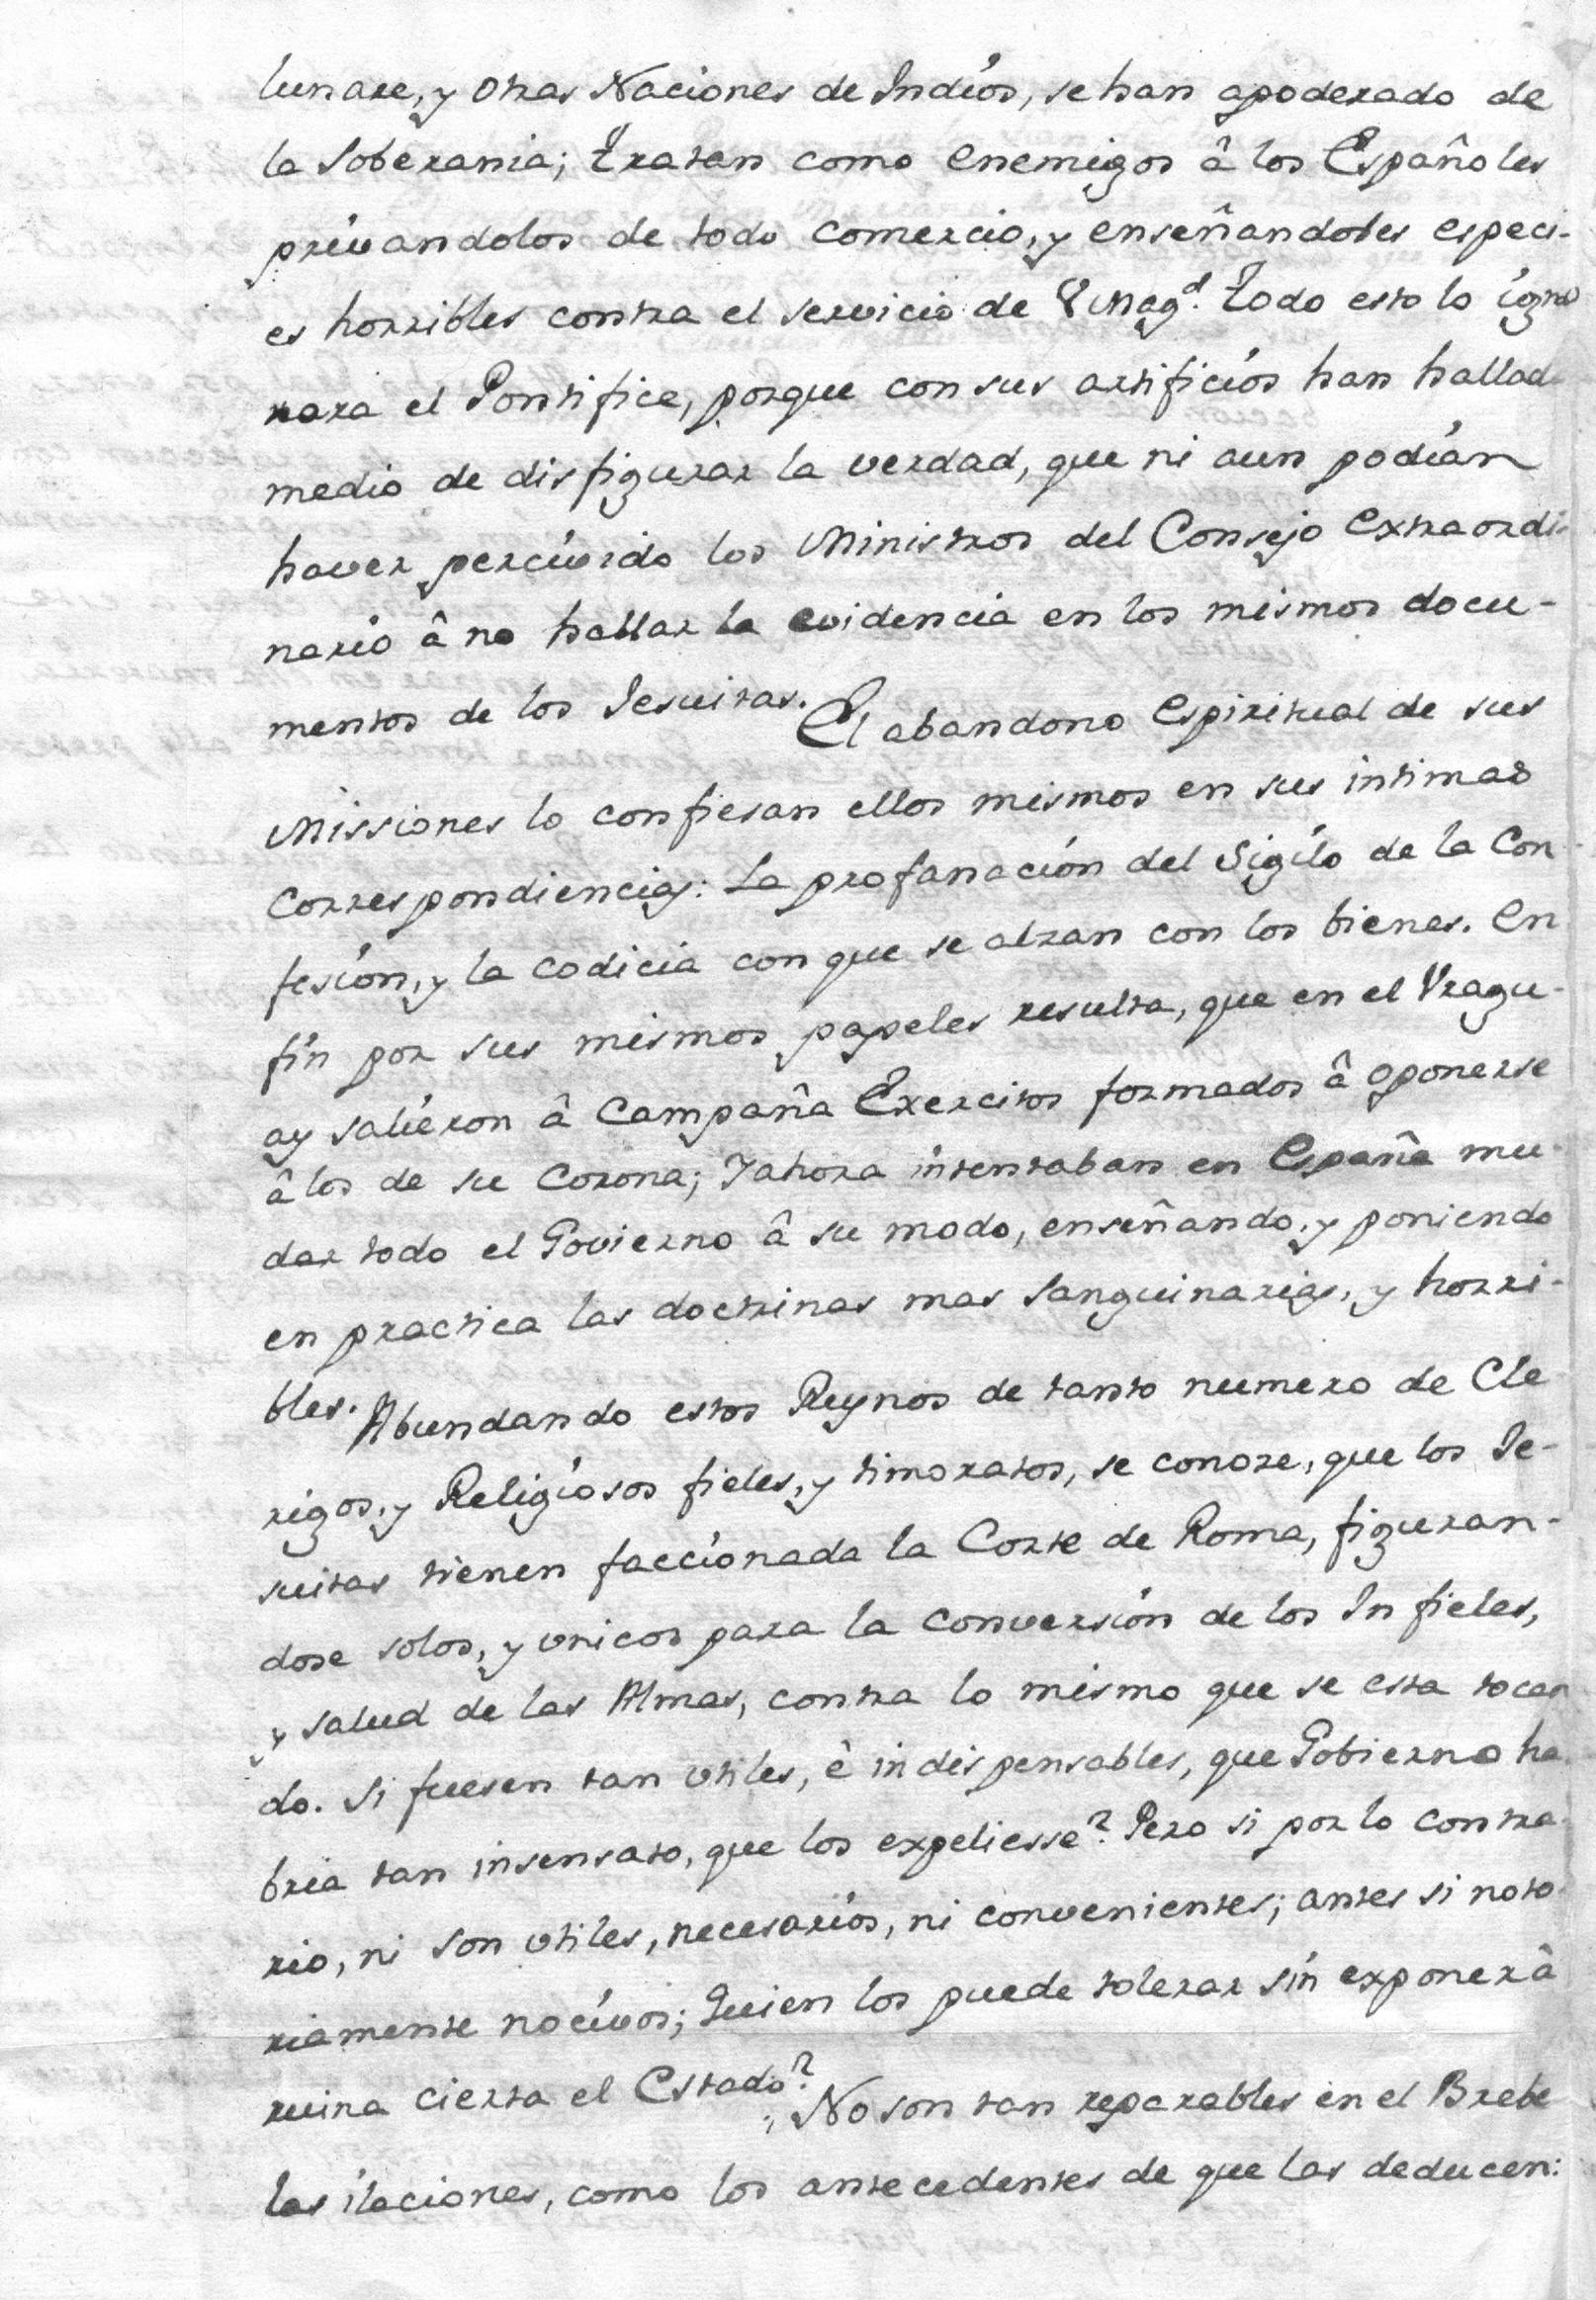 lunare, y otras Naciones de Indios, se han apoderado de
la Soberania; tratan como enemigos â los Españoles
privandolos de todo comercio, y enseñandoles especi-
es horribles contra el servicio de V Mag.d Todo esto lo igno
rara el Pontifice, porque con sus artificios han hallado
medio de disfigurar la verdad, que ni aun podían
haver percivido los Ministros del Consejo Extraordi-
nario â no hallar la evidencia en los mismos docu-
mentos de los Jesuitas. El abandono espiritual de sus
Missiones lo confiesan ellos mismos en sus intimas
Correspondiencias: La profanación del Sigilo de la Con-
fesión, y la codicia con que se alzan con los bienes. En
fin por sus mismos papeles resulta, que en el Vragu-
ay salieron â Campaña Exercitos formados â oponerse
â los de su Corona; Y ahora intentaban en España mu-
dar todo el Govierno â su modo, enseñando, y poniendo
en practica las doctrinas mas sanguinarias, y horri-
bles. Abundando estos Reynos de tanto numero de Cle
rigos, y Religiosos fieles, y timoratos, se conoze, que los Je-
suitas tienen faccionada la Corte de Roma, figuran-
dose solos, y vnicos para la conversión de los Infieles,
y salud de las Almas, contra lo mismo que se esta tocan
do. Si fuesen tan vtiles, ê indispensables, que Gobierno ha-
bria tan insensato, que los expeliesse? Pero si por lo contra-
rio, ni son vtiles, necesarios, ni convenientes; antes si noto-
riamente nocivos; Quien los puede tolerar sin exponer â
ruina cierta el Estado? No son tan reparables en el Brebe
las ilaciones, como los antecedentes de que las deducen: